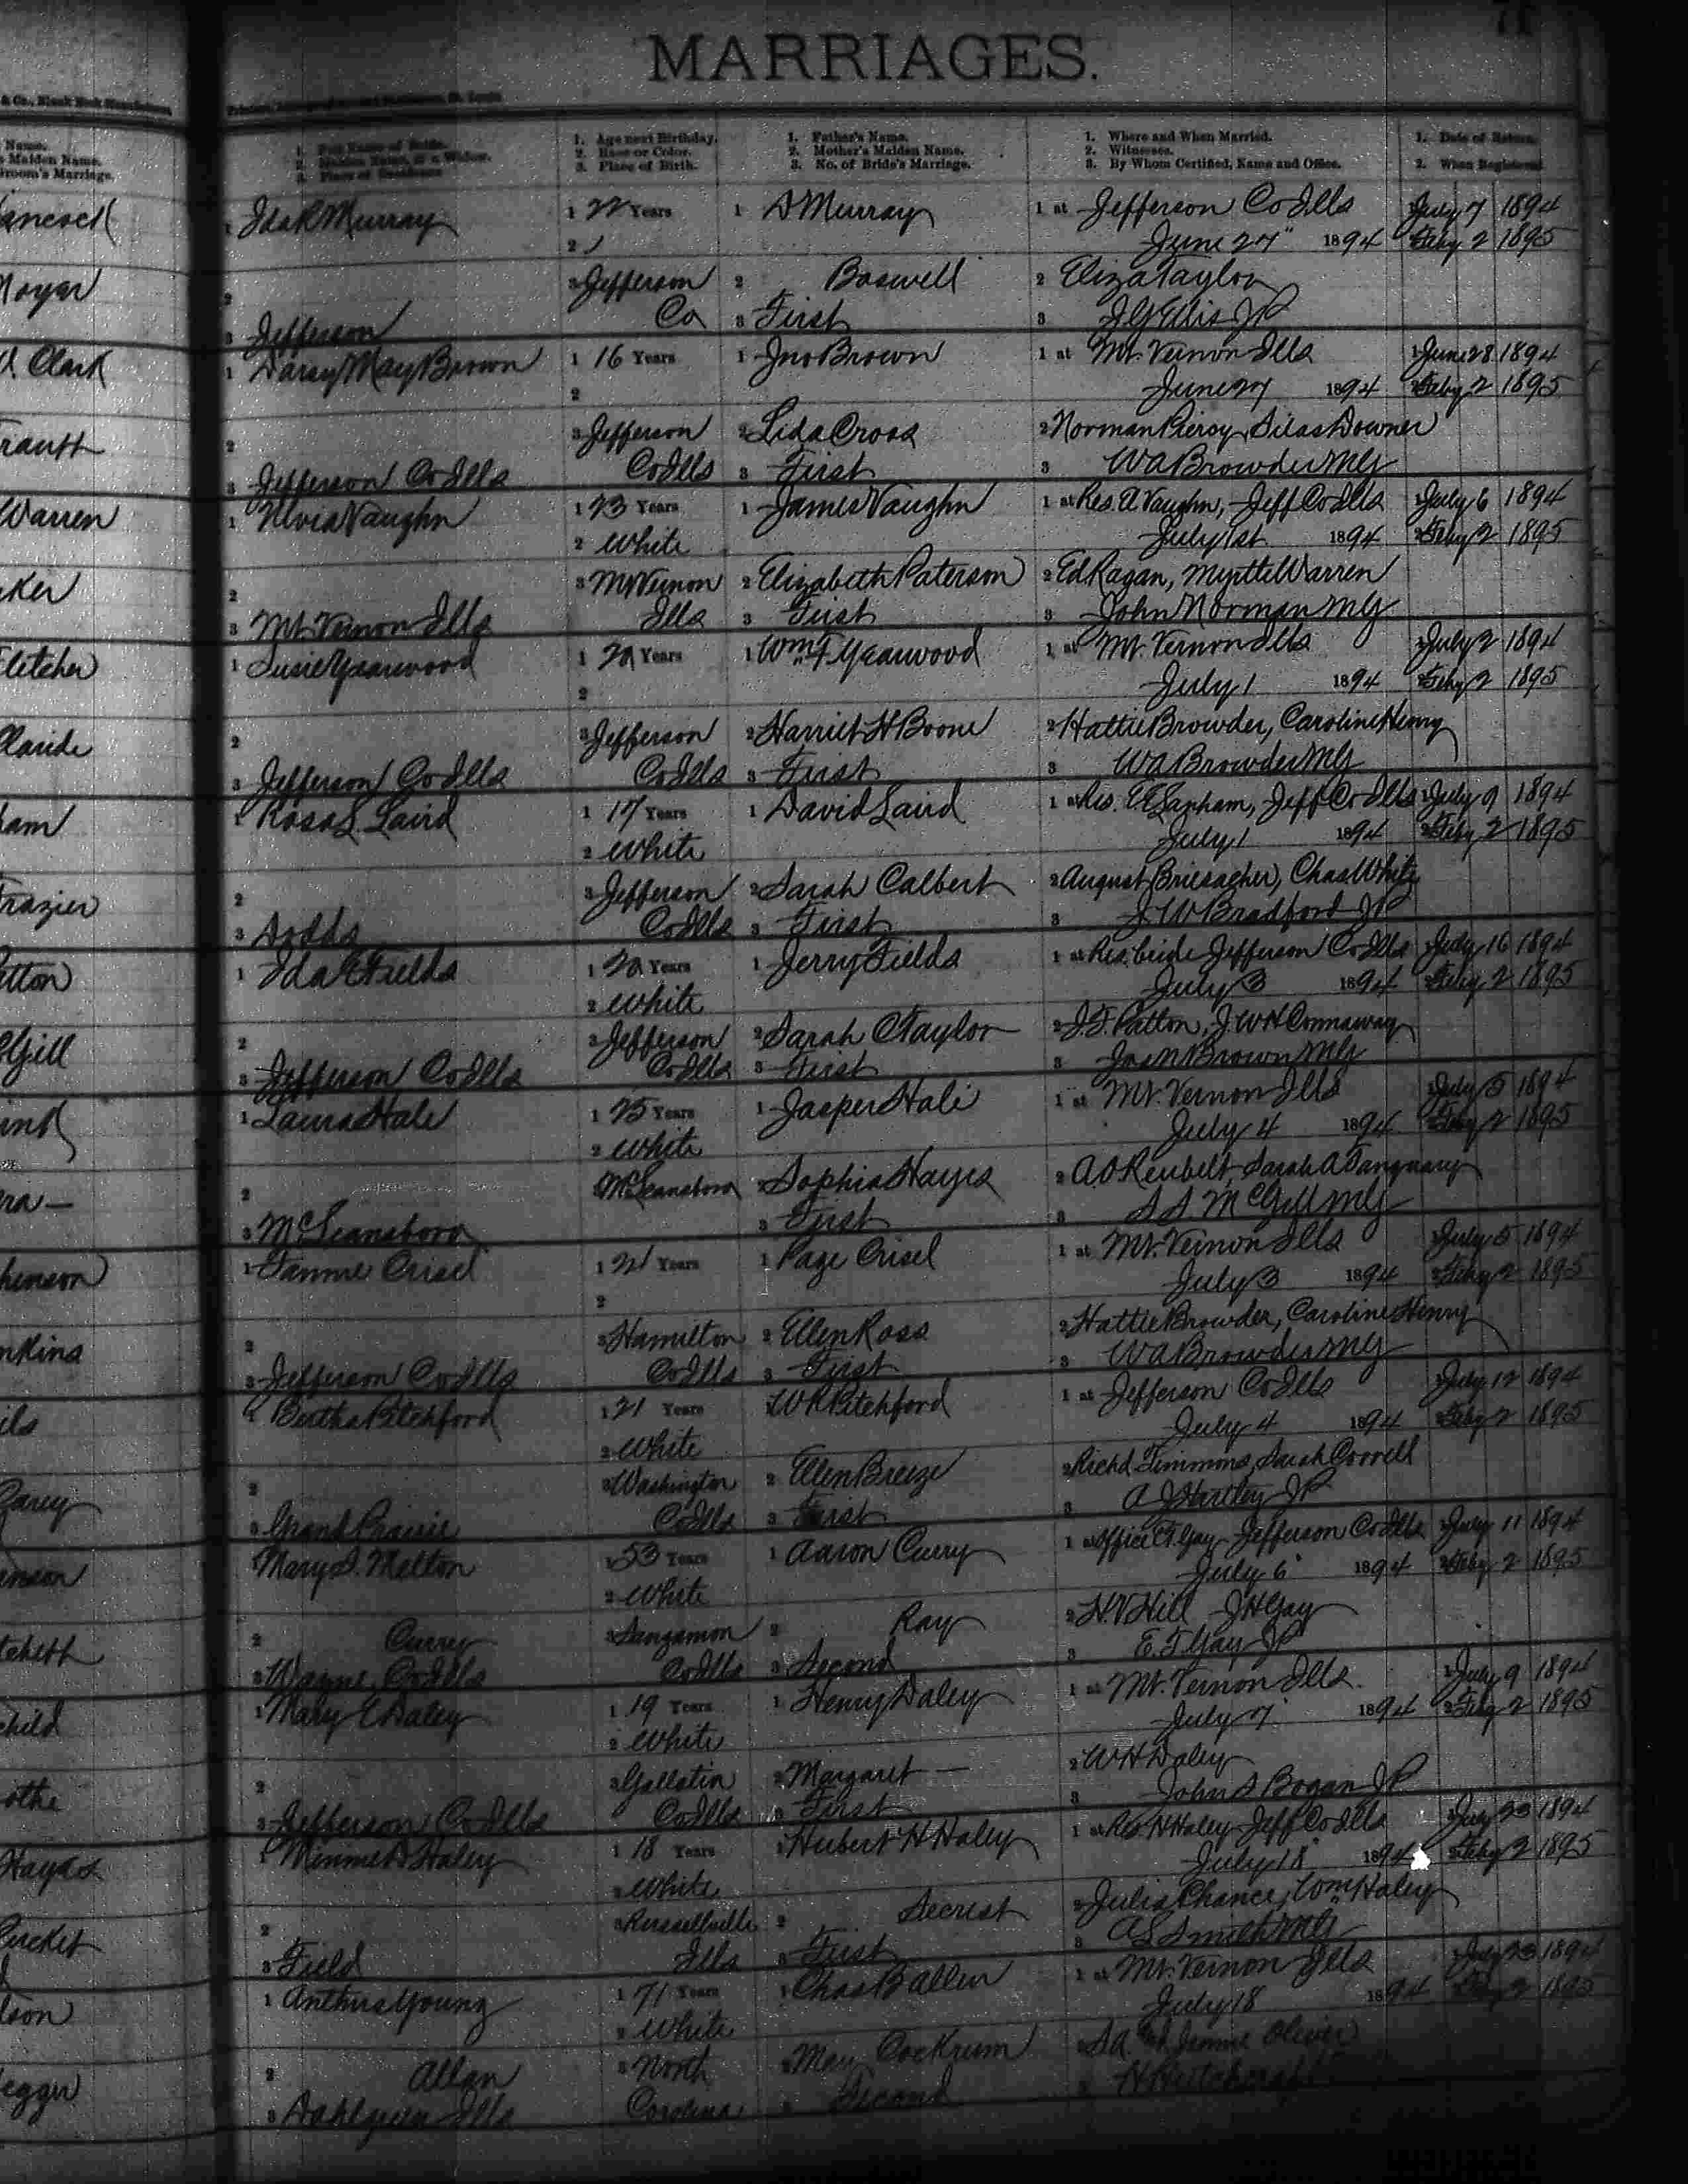 71
MARRIAGES.
& Co., Blank Book Manufacturers,
Name.
Maiden Name.
Groom's Marriage.
1. Full Name of Bride.
2. Maiden Name, if a Widow.
3. Place of Residence
1. Age next Birthday.
2. Race or Color.
3. Place of Birth.
1. Father's Name.
2. Mother's Maiden Name.
3. No. of Bride's Marriage.
1. Where and When Married.
2. Witnesses.
3. By Whom Certified, Name and Office.
1. Date of Return.
2. When Registered.
1 Ida R Murray 1 22 Years 1 A Murray 1 at Jefferson Co Ills 1 July 7 1894
2 June 27" 1894 2 Feby 2 1895
2 3 Jefferson 2 Boswell 2 Eliza Taylor
3 Jefferson Co 3 First 3 J G Ellis JP
Clark
1 Darsy May Brown 1 16 Years 1 Jno Brown 1 at Mt. Vernon Ills 1 June 28 1894
2 June 27 1894 2 Feby 2 1895
2 3 Jefferson 2 Lida Cross 2 Norman Piercy, Silas Downer
3 Jefferson Co Ills Co Ills 3 First 3 W A Browder MG
Warren
1 Vaughn 1 23 Years 1 James Vaughn 1 at Res. A Vaughn, Jeff Co Ills 1 July 6 1894
2 White July 1st 1894 2 Feby 2 1895
2 3 Mt Vernon 2 Elizabeth Paterson 2 Ed Ragan, Myrtte Warren
3 Mt. Vernon Ills Ills 3 First 3 John Norman MG
Fletcher
1 Susie Yearwood 1 20 Years 1 Wm F. Yearwood 1 at Mt. Vernon Ills 1 July 2 1894
2 July 1 1894 2 Feby 2 1895
2 3 Jefferson 2 Harriet H Boone 2 Hattie Browder, Caroline Henry
3 Jefferson Co Ills Co Ills 3 First 3 W A Browder MG
1 Rosa L. Laird 1 17 Years 1 David Laird 1 at Res. E E Lanham, Jeff Co Ills 1 July 9 1894
2 White July 1 1894 2 Feby 2 1895
Frazier
2 3 Jefferson 2 Sarah Calbert 2 August Chas White
3 Dodds Co Ills 3 First 3 J W Bradford JP
1 Ida E Fields 1 20 Years 1 Jerry Fields 1 at Res. bride Jefferson Co Ills 1 July 16 1894
2 White July 3 1894 2 Feby 2 1895
2 3 Jefferson 2 Sarah C Taylor 2 J. F. Patton, J W H Connaway
3 Jefferson Co Ills Co Ills 3 First 3 Jas N Brown MG
1 Laura Hale 1 25 Years 1 Jasper Hale 1 at Mt. Vernon Ills 1 July 5 1894
2 White July 4 1894 2 Feby 2 1895
2 3 McLeansboro 2 Sophia Hayes 2 A. O Reubelt, Sarah A Tanquary
3 McLeansboro 3 First 3 McGill MG
1 Fannie Crisel 1 21 Years 1 Page Crisel 1 at Mt. Vernon Ills 1 July 5 1894
2 July 3 1894 2 Feby 2 1895
2 3 Hamilton 2 Ellen Ross 2 Hattie Browder, Caroline Henry
3 Jefferson Co Ills Co Ills 3 First 3 W A Browder MG
1 Bertha Pitchford 1 21 Years 1 W R Pitchford 1 at Jefferson Co Ills 1 July 12 1894
2 White July 4 1894 2 Feby 2 1895
2 3 Washington 2 Ellen Breeze 2 Richd Timmons, Sarah Correll
3 Grand Prairie Co Ills 3 First 3 A J Hartley JP
Mary J. Melton 1 53 Years 1 Aaron Curry 1 at Office E. F. Gay Jefferson Co Ills 1 July 11 1894
2 White July 6 1894 2 Feby 2 1895
2 Currey 3 Sangamon 2 Ray 2 H. V Hill J H Gay
3 Wayne Co Ills Co Ills 3 Second 3 E. F. Gay JP
1 Mary E Daley 1 19 Years 1 Henry Daley 1 at Mt. Vernon Ills. 1 July 9 1894
2 White July 7 1894 2 Feby 2 1895
2 3 Gallatin 2 Margaret — 2 W H Daley
3 Jefferson Co Ills Co Ills 3 First 3 John S Bogan JP
1 Minnie D Haley 1 18 Years 1 Hubert H Haley 1 at Res. H Haley Jeff Co Ills 1 July 23 1894
Hayes
2 White July 18 1894 2 Feby 2 1895
2 3 Russellville 2 Secrist 2 Julia Chance, Wm Haley
3 Field Ills 3 First 3 A S Smith MG
1 Young 1 71 Years 1 Chas B Allen 1 at Mt. Vernon Ills 1 July 23 1894
2 White July 18 1894 2 Feby 2 1895
2 Allan 3 North 2 May Cockrum 2 Jennie Oliver
3 Dahlgren Ills Carolina 3 Second 3